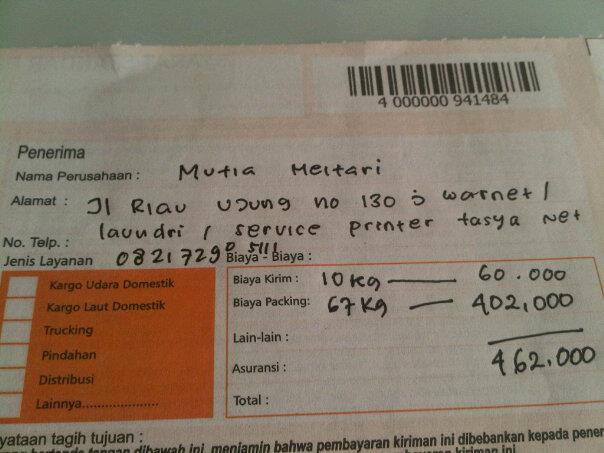 4 000000 941484
Penerima
Nama Perusahaan : Mutia Meltari
Alamat : Jl Riau ujung no 130 j warnet /
laundri / service printer tasya net
No. Telp. : 082172905111
Jenis Layanan
Kargo Udara Domestik
Kargo Laut Domestik
Trucking
Pindahan
Distribusi
Lainnya...................
Biaya - Biaya :
Biaya Kirim : 10 Kg — 60.000
Biaya Packing: 67 Kg — 402,000
Lain-lain :
462.000
Asuransi :
Total :
yataan tagih tujuan :
dibawah ini, menjamin bahwa pembayaran kiriman ini dibebankan kepada pener